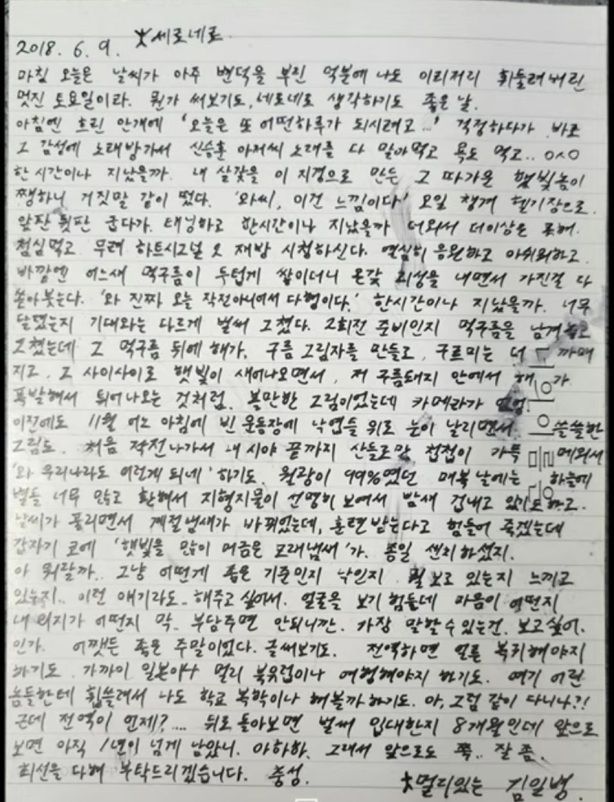 2018. 6. 9. 세로네로.
마침 오늘은 날씨가 아주 변덕을 부린 덕분에 나도 이리저리 휘둘려버린
멋진 토요일이라. 뭔가 써보기도, 네로네로 생각하기도 좋은 날.
아침엔 흐린 안개에 '오늘은 또 어떤하루가 되시려고...' 걱정하다가 바로
그 감성에 노래방가서 신승훈 아저씨 노래를 다 말아먹고 욕도 먹고..
한시간이나 지났을까. 내 살갗을 이 지경으로 만든 그 따가운 햇빛놈이
쨍하니 거짓말 같이 떴다. '와씨, 이건 느낌이다' 오일 챙겨 헬기장으로.
앞판 뒷판 굽다가. 태닝하고 한시간이나 지났을까 더워서 더이상은 못해.
점심먹고 무려 하트시그널 2 재방 시청하신다. 열심히 응원하고 아쉬워하고.
바깥엔 어느새 먹구름이 두텁게 쌓이더니 온갖 괴성을 내면서 가진걸 다
쏟아붓는다. '와 진짜 오늘 작전아니어서 다행이다.' 한시간이나 지났을까. 너무
달렸는지 기대와는 다르게 벌써 그쳤다. 2회전 준비인지 먹구름을 남겨놓고
그쳤는데 그 먹구름 뒤에 해가. 구름 그림자를 만들고, 구르미는 더 까매
지고. 그 사이사이로 햇빛이 새어나오면서, 저 구름돼지 안에서 해가
폭발해서 튀어나오는 것처럼. 볼만한 그림이었는데 카메라가
이전에도 11월 어느 아침에 빈 운동장에 낙엽들 위로 눈이 날리면서 쓸쓸한
그림도. 처음 작전나가서 내 시야 끝까지 산들로만 첩첩이 가득 메워서
'와 우리나라도 이렇게 되네' 하기도. 월광이 99%였던 매복날에는 하늘에
별들 너무 많고 환해서 지형지물이 선명히 보여서 밤새 겁내고 있기도하고.
날씨가 풀리면서 계절냄새가 바뀌었는데, 훈련받는다고 힘들어 죽겠는데
갑자기 코에 '햇빛을 많이 머금은 모래냄새'가. 종일 센치하셨지.
아 뭐랄까.. 그냥 어떻게 좁은 기준인지 낙인지 뭘 보고 있는지 느끼고
있는지.. 이런 얘기라도.. 해주고 싶어서. 얼굴을 보기 힘든데 마음이 어떤지
내 의지가 어떤지 막.. 부담주면 안되니깐. 가장 말할수 있는건. 보고싶어.
인가. 어쨌든 좋은 주말이었다. 글써보기도. 전역하면 얼른 복귀해야지
하기도. 가까이 일본이나 멀리 북유럽이나 여행해야지 하기도. 여기 어린
놈들한테 휩쓸려서 나도 학교 복학이나 해볼까하기도. 아, 그럼 같이 다니나?!
근데 전역이 언제?.... 뒤로 돌아보면 벌써 입대한지 8개월인데 앞으로
보면 아직 1년이 넘게 남았니. 아하하. 그래서 앞으로도 쭉.. 잘 좀.
최선을 다해 부탁드리겠습니다. 충성.
멀리있는 김일병